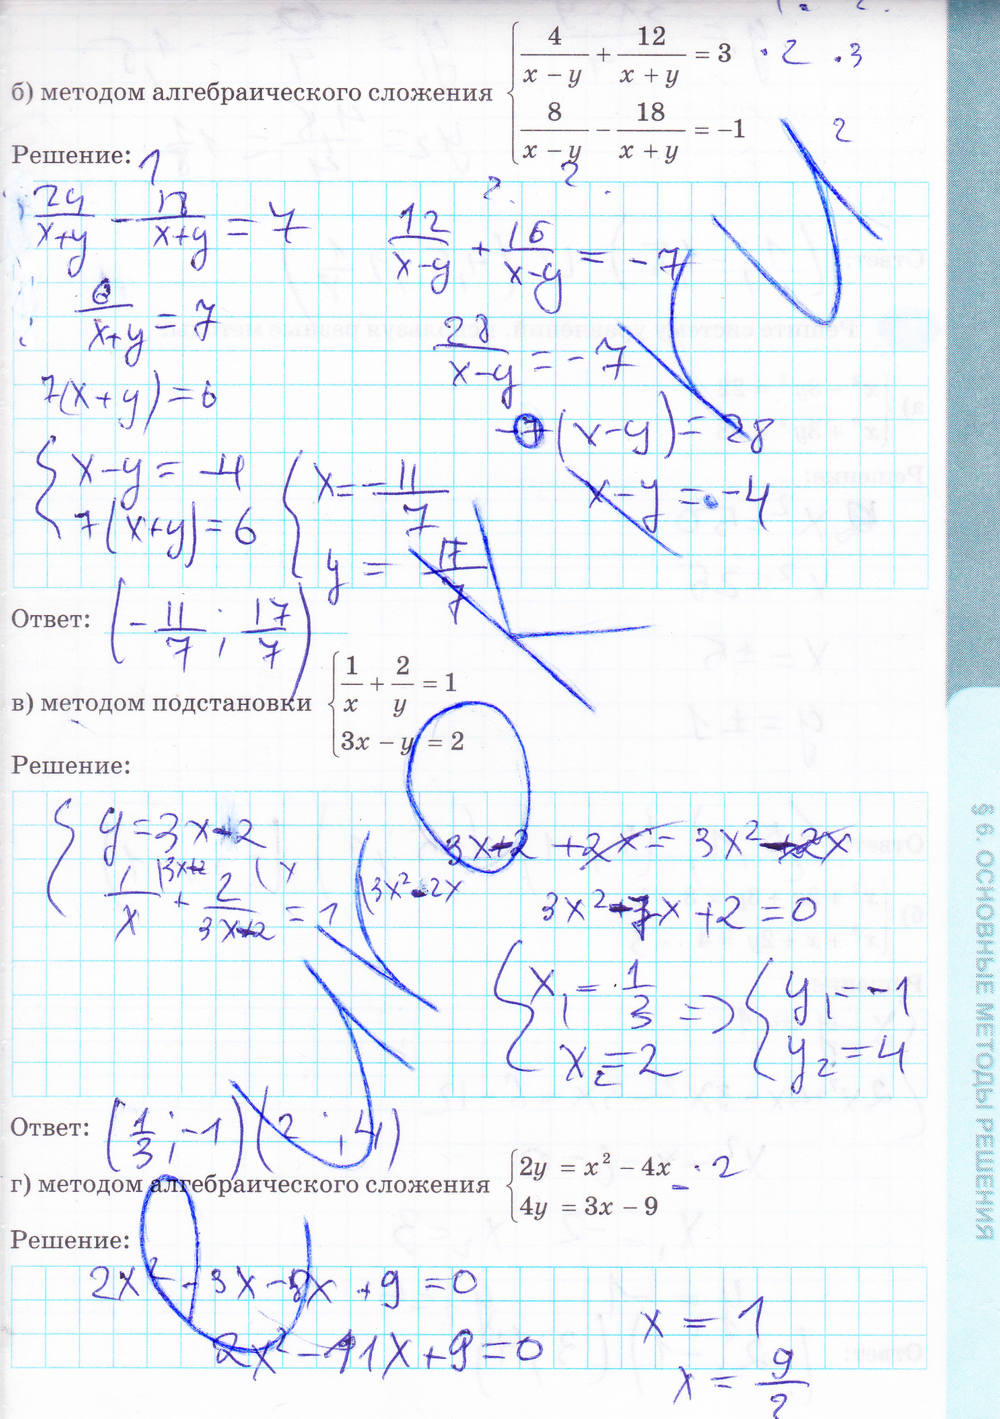 б) методом алгебраического сложения { 4/(x − y) + 12/(x + y) = 3 · 2 · 3
8/(x − y) − 18/(x + y) = −1 2
Решение:
24/(x+y) − 18/(x+y) = 7
12/(x−y) + 16/(x−y) = −7
6/(x+y) = 7
28/(x−y) = −7
7(x+y) = 6
−7(x−y) = 28
{ x−y = −4
7(x+y) = 6
{ x = −11/7
y = 17/7
x−y = −4
Ответ: (−11/7; 17/7)
в) методом подстановки { 1/x + 2/y = 1
3x − y = 2
Решение:
{ y = 3x−2
1/x + 2/(3x−2) = 1 (3x²−2x
3x−2 + 2x = 3x² −2x
3x² −7x + 2 = 0
{ x₁ = 1/3
x₂ = 2
=> { y₁ = −1
y₂ = 4
Ответ: (1/3; −1) (2; 4)
г) методом алгебраического сложения { 2y = x² − 4x · 2
4y = 3x − 9
Решение:
2x² − 3x − 8x + 9 = 0
2x² − 11x + 9 = 0
x = 1
x = 9/2
§ 6. ОСНОВНЫЕ МЕТОДЫ РЕШЕНИЯ